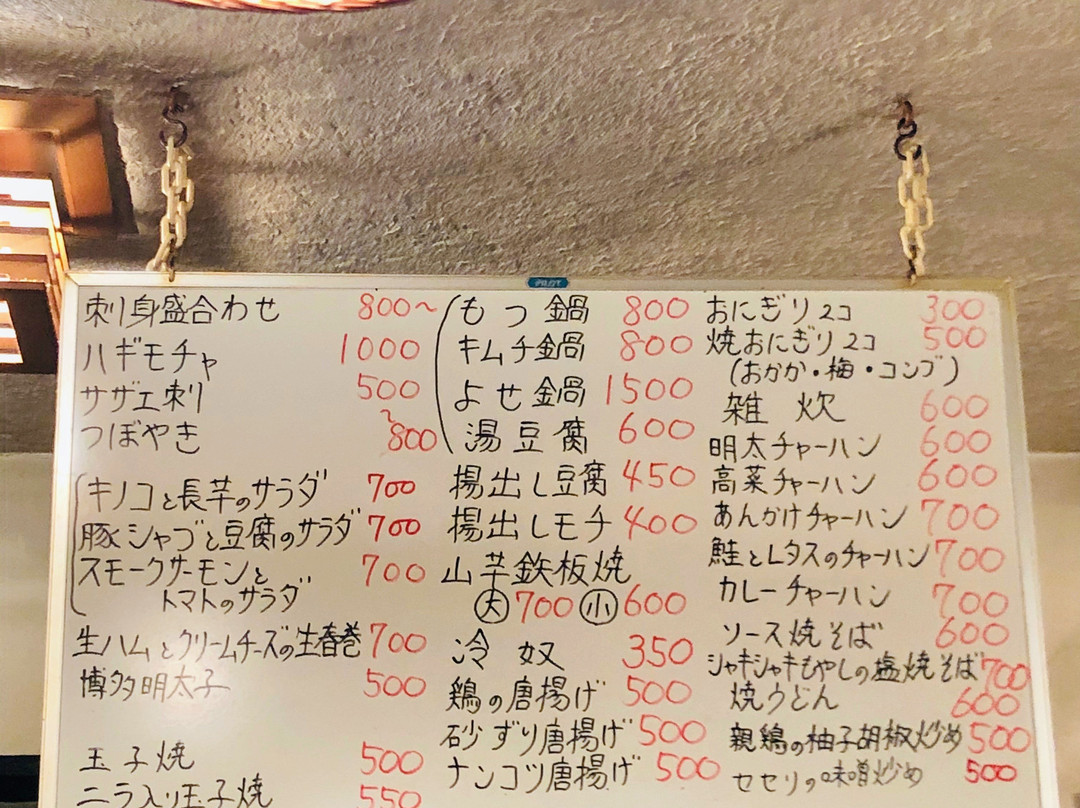 PILOT
刺身盛合わせ 800～
ハギモチャ 1000
サザエ刺 500
つぼやき ～800
キノコと長芋のサラダ 700
豚シャブと豆腐のサラダ 700
スモークサーモンと 700
トマトのサラダ
生ハムとクリームチーズの生春巻 700
博多明太子 500
玉子焼 500
ニラ入り玉子焼 550
もつ鍋 800
キムチ鍋 800
よせ鍋 1500
湯豆腐 600
揚出し豆腐 450
揚出しモチ 400
山芋鉄板焼
大 700 小 600
冷奴 350
鶏の唐揚げ 500
砂ずり唐揚げ 500
ナンコツ唐揚げ 500
おにぎり2コ 300
焼おにぎり2コ 500
(おかか・梅・コンブ)
雑炊 600
明太チャーハン 600
高菜チャーハン 600
あんかけチャーハン 700
鮭とレタスのチャーハン 700
カレーチャーハン 700
ソース焼そば 600
シャキシャキもやしの塩焼そば 700
焼うどん 600
親鶏の柚子胡椒炒め 500
セセリの味噌炒め 500